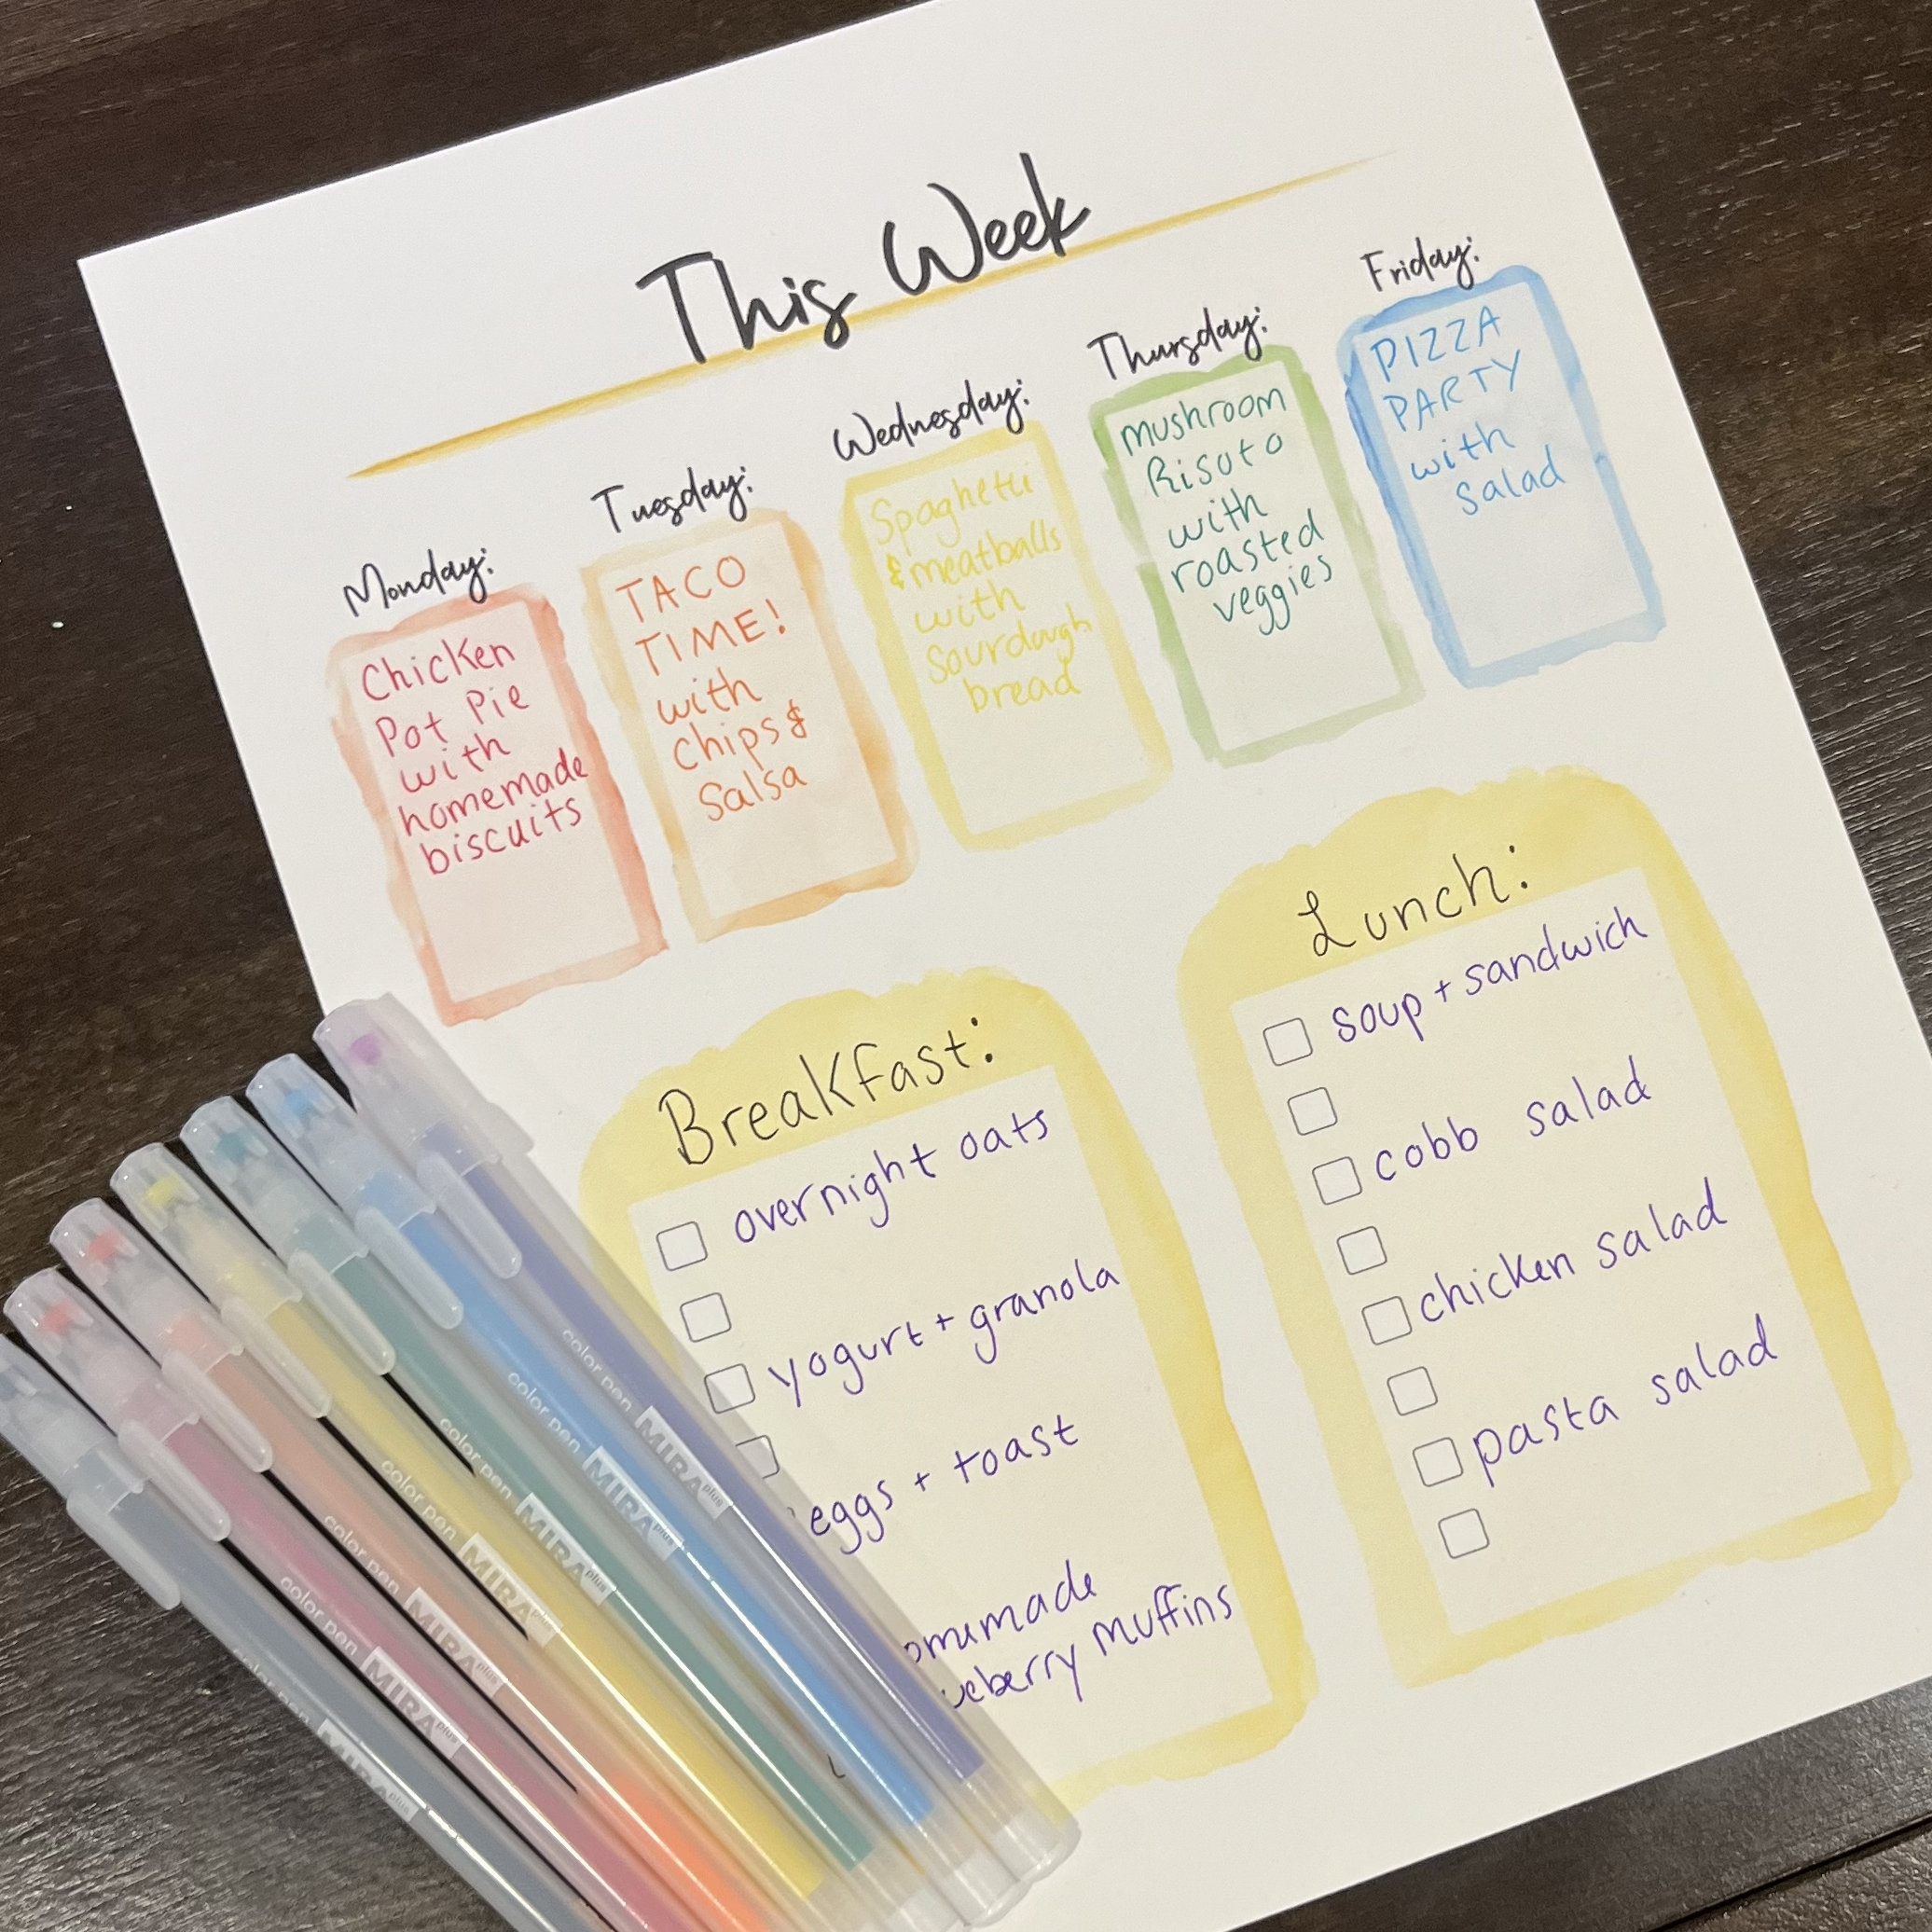 This Week
Monday:
Chicken
Pot Pie
with
homemade
biscuits
Tuesday:
TACO
TIME!
with
Chips &
Salsa
Wednesday:
Spaghetti
& meatballs
with
Sourdough
bread
Thursday:
mushroom
Risoto
with
roasted
veggies
Friday:
PIZZA
PARTY
with
Salad
Breakfast:
overnight oats
yogurt + granola
eggs + toast
muffins
Lunch:
soup + sandwich
cobb salad
chicken salad
pasta salad
color pen MIRA plus
color pen MIRA plus
color pen MIRA plus
color pen MIRA plus
color pen MIRA plus
color pen MIRA plus
color pen MIRA plus